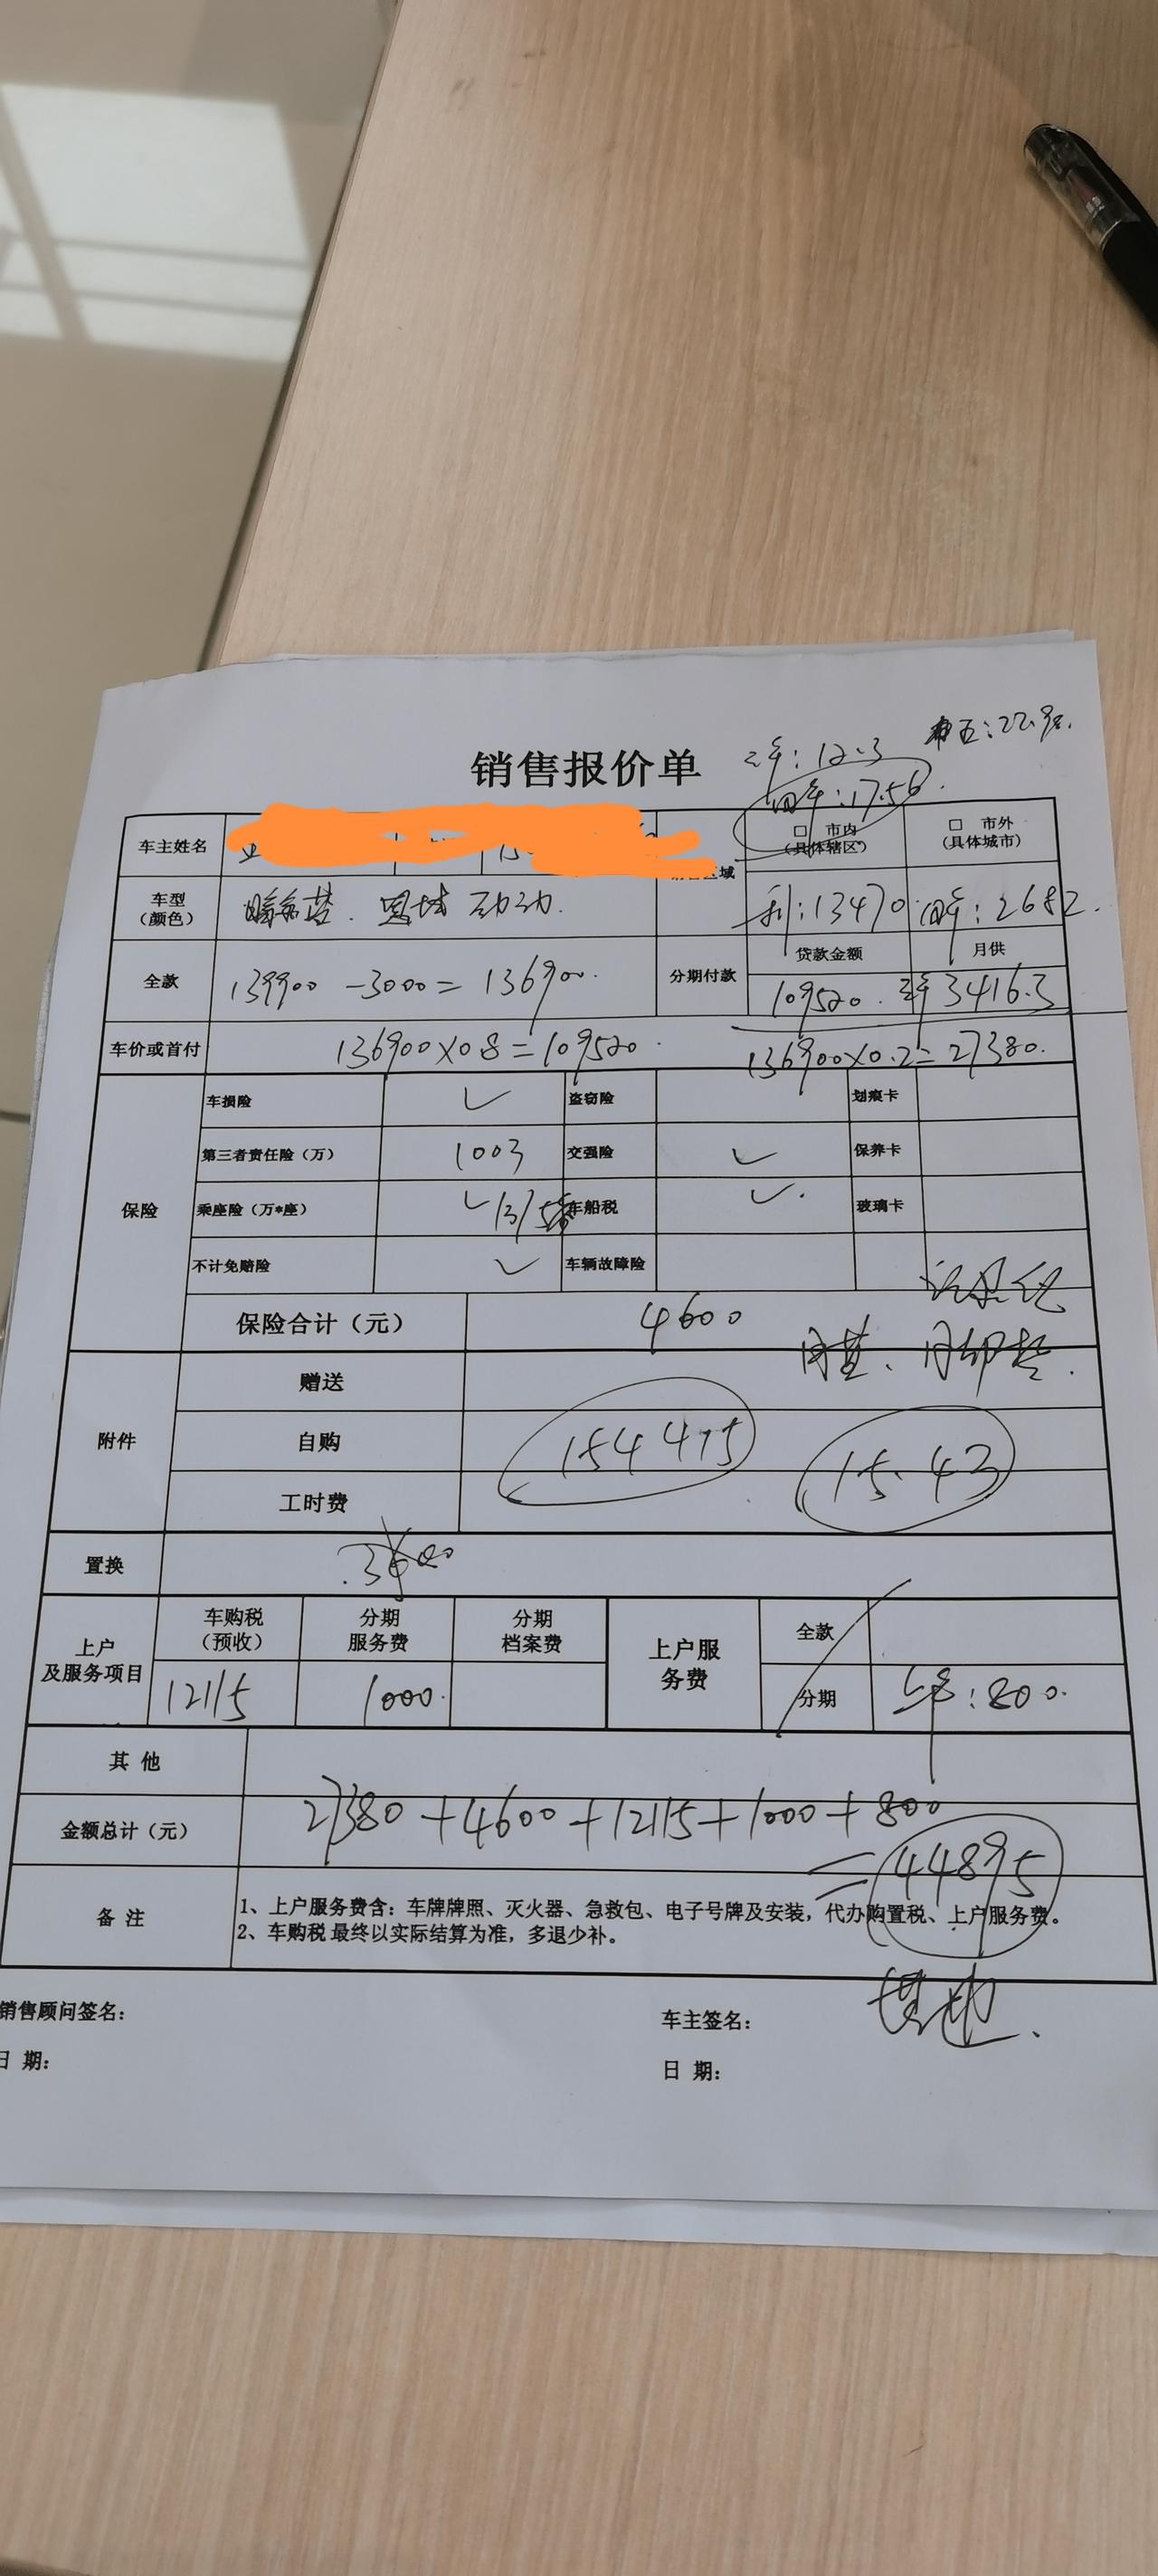 销售报价单
三年:12.3
五:22.9
四年:17.56
车主姓名
□ 市内
(具体辖区)
□ 市外
(具体城市)
区域
车型
(颜色)
思域 劲动
利:13470
四年:2682
全款
139900 -3000=136900
分期付款
贷款金额
月供
109520
三年3416.3
车价或首付
136900×0.8=109520
136900×0.2=27380
保险
车损险
✓
盗窃险
划痕卡
第三者责任险(万)
100万
交强险
✓
保养卡
乘座险(万*座)
✓
车船税
✓
玻璃卡
不计免赔险
✓
车辆故障险
保险合计(元)
4600
附件
赠送
自购
154475
15.43
工时费
置换
上户
及服务项目
车购税
(预收)
分期
服务费
分期
档案费
上户服
务费
全款
12115
1000
分期
800
其 他
金额总计(元)
27380+4600+12115+1000+800
=44895
备 注
1、上户服务费含:车牌牌照、灭火器、急救包、电子号牌及安装,代办购置税、上户服务费。
2、车购税最终以实际结算为准,多退少补。
销售顾问签名:
车主签名:
日 期:
日 期: